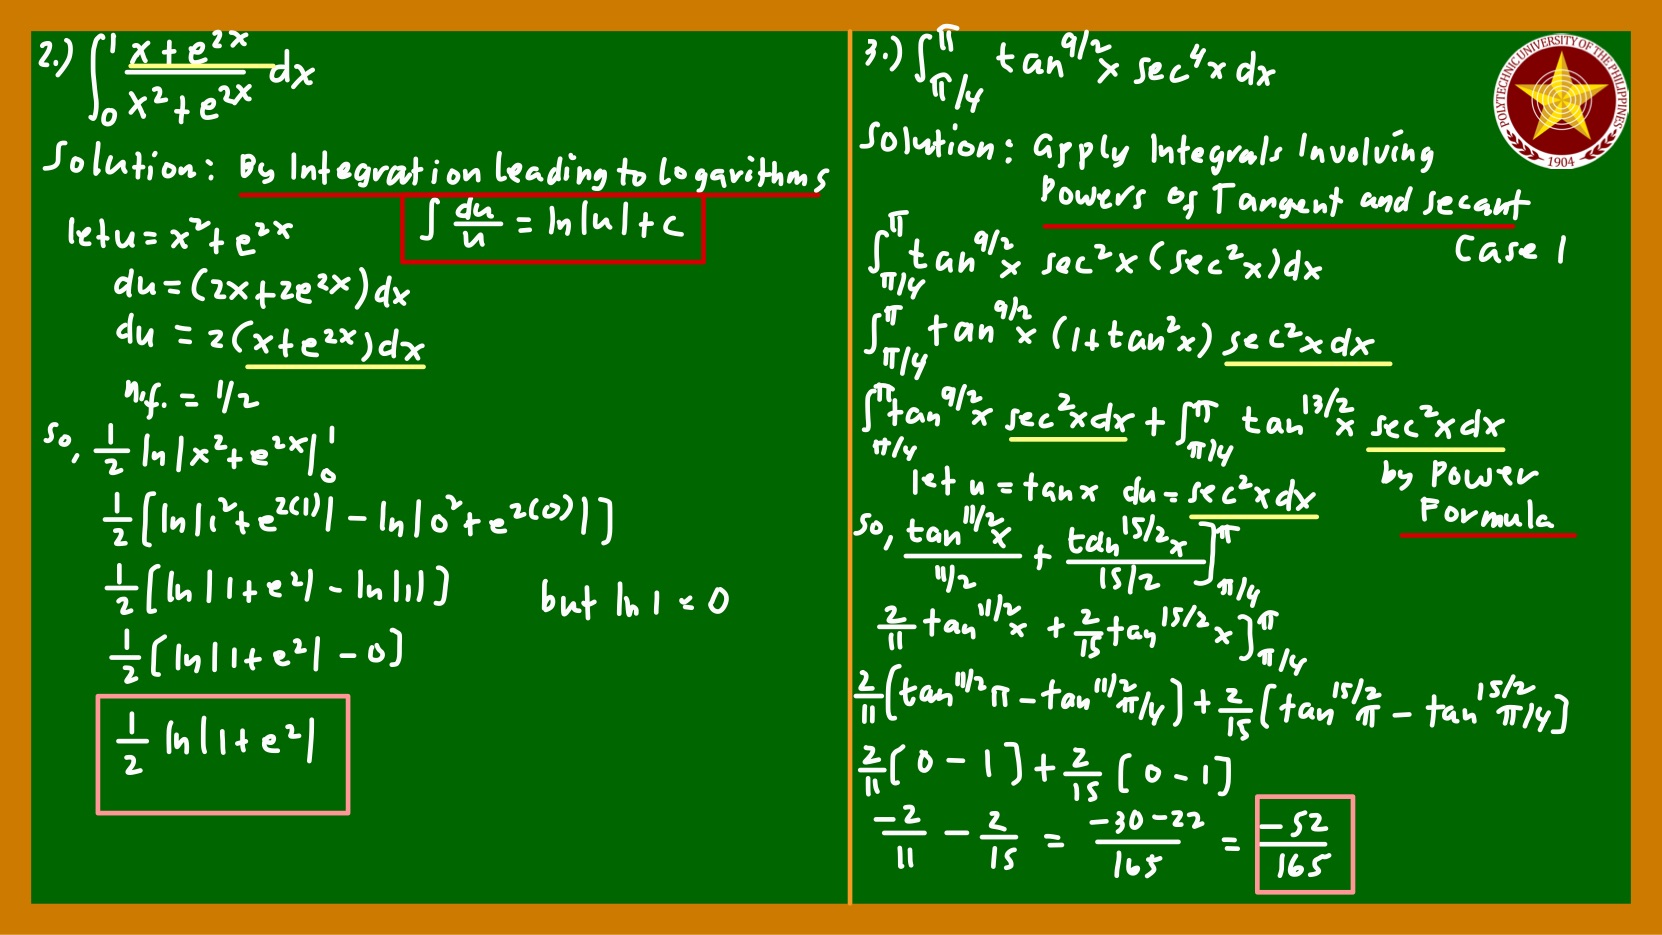 2.) ∫₀¹ (x + e^{2x})/(x² + e^{2x}) dx
Solution: By Integration leading to Logarithms
∫ du/u = ln|u| + c
let u = x² + e^{2x}
du = (2x + 2e^{2x}) dx
du = 2(x + e^{2x}) dx
n.f. = 1/2
so, 1/2 ln|x² + e^{2x}|₀¹
1/2 [ln|1² + e^{2(1)}| - ln|0² + e^{2(0)}|]
1/2 [ln|1 + e²| - ln|1|] but ln 1 = 0
1/2 [ln|1 + e²| - 0]
1/2 ln|1 + e²|
3.) ∫_{π/4}^{π} tan^{9/2} x sec⁴ x dx
Solution: Apply Integrals Involving
Powers of Tangent and secant
Case 1
∫_{π/4}^{π} tan^{9/2} x sec² x (sec² x) dx
∫_{π/4}^{π} tan^{9/2} x (1 + tan² x) sec² x dx
∫_{π/4}^{π} tan^{9/2} x sec² x dx + ∫_{π/4}^{π} tan^{13/2} x sec² x dx
by Power
Formula
let u = tan x du = sec² x dx
so, (tan^{11/2} x)/(11/2) + (tan^{15/2} x)/(15/2) ]_{π/4}^{π}
2/11 tan^{11/2} x + 2/15 tan^{15/2} x ]_{π/4}^{π}
2/11 [tan^{11/2} π - tan^{11/2} π/4] + 2/15 [tan^{15/2} π - tan^{15/2} π/4]
2/11 [0 - 1] + 2/15 [0 - 1]
-2/11 - 2/15 = (-30 - 22)/165 = -52/165
POLYTECHNIC UNIVERSITY OF THE PHILIPPINES
1904